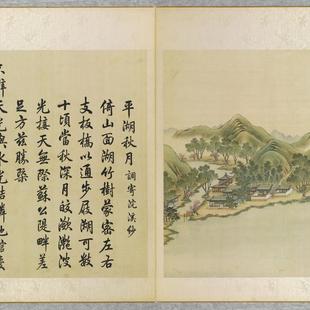 平湖秋月 調寄浣溪紗
倚山面湖竹樹蒙密左右
支板橋以通步屧湖可數
十頃當秋深月皎瀲灩波
光接天無際蘇公隄畔差
足方茲勝槩
不辨天光與水光結璘池館慶